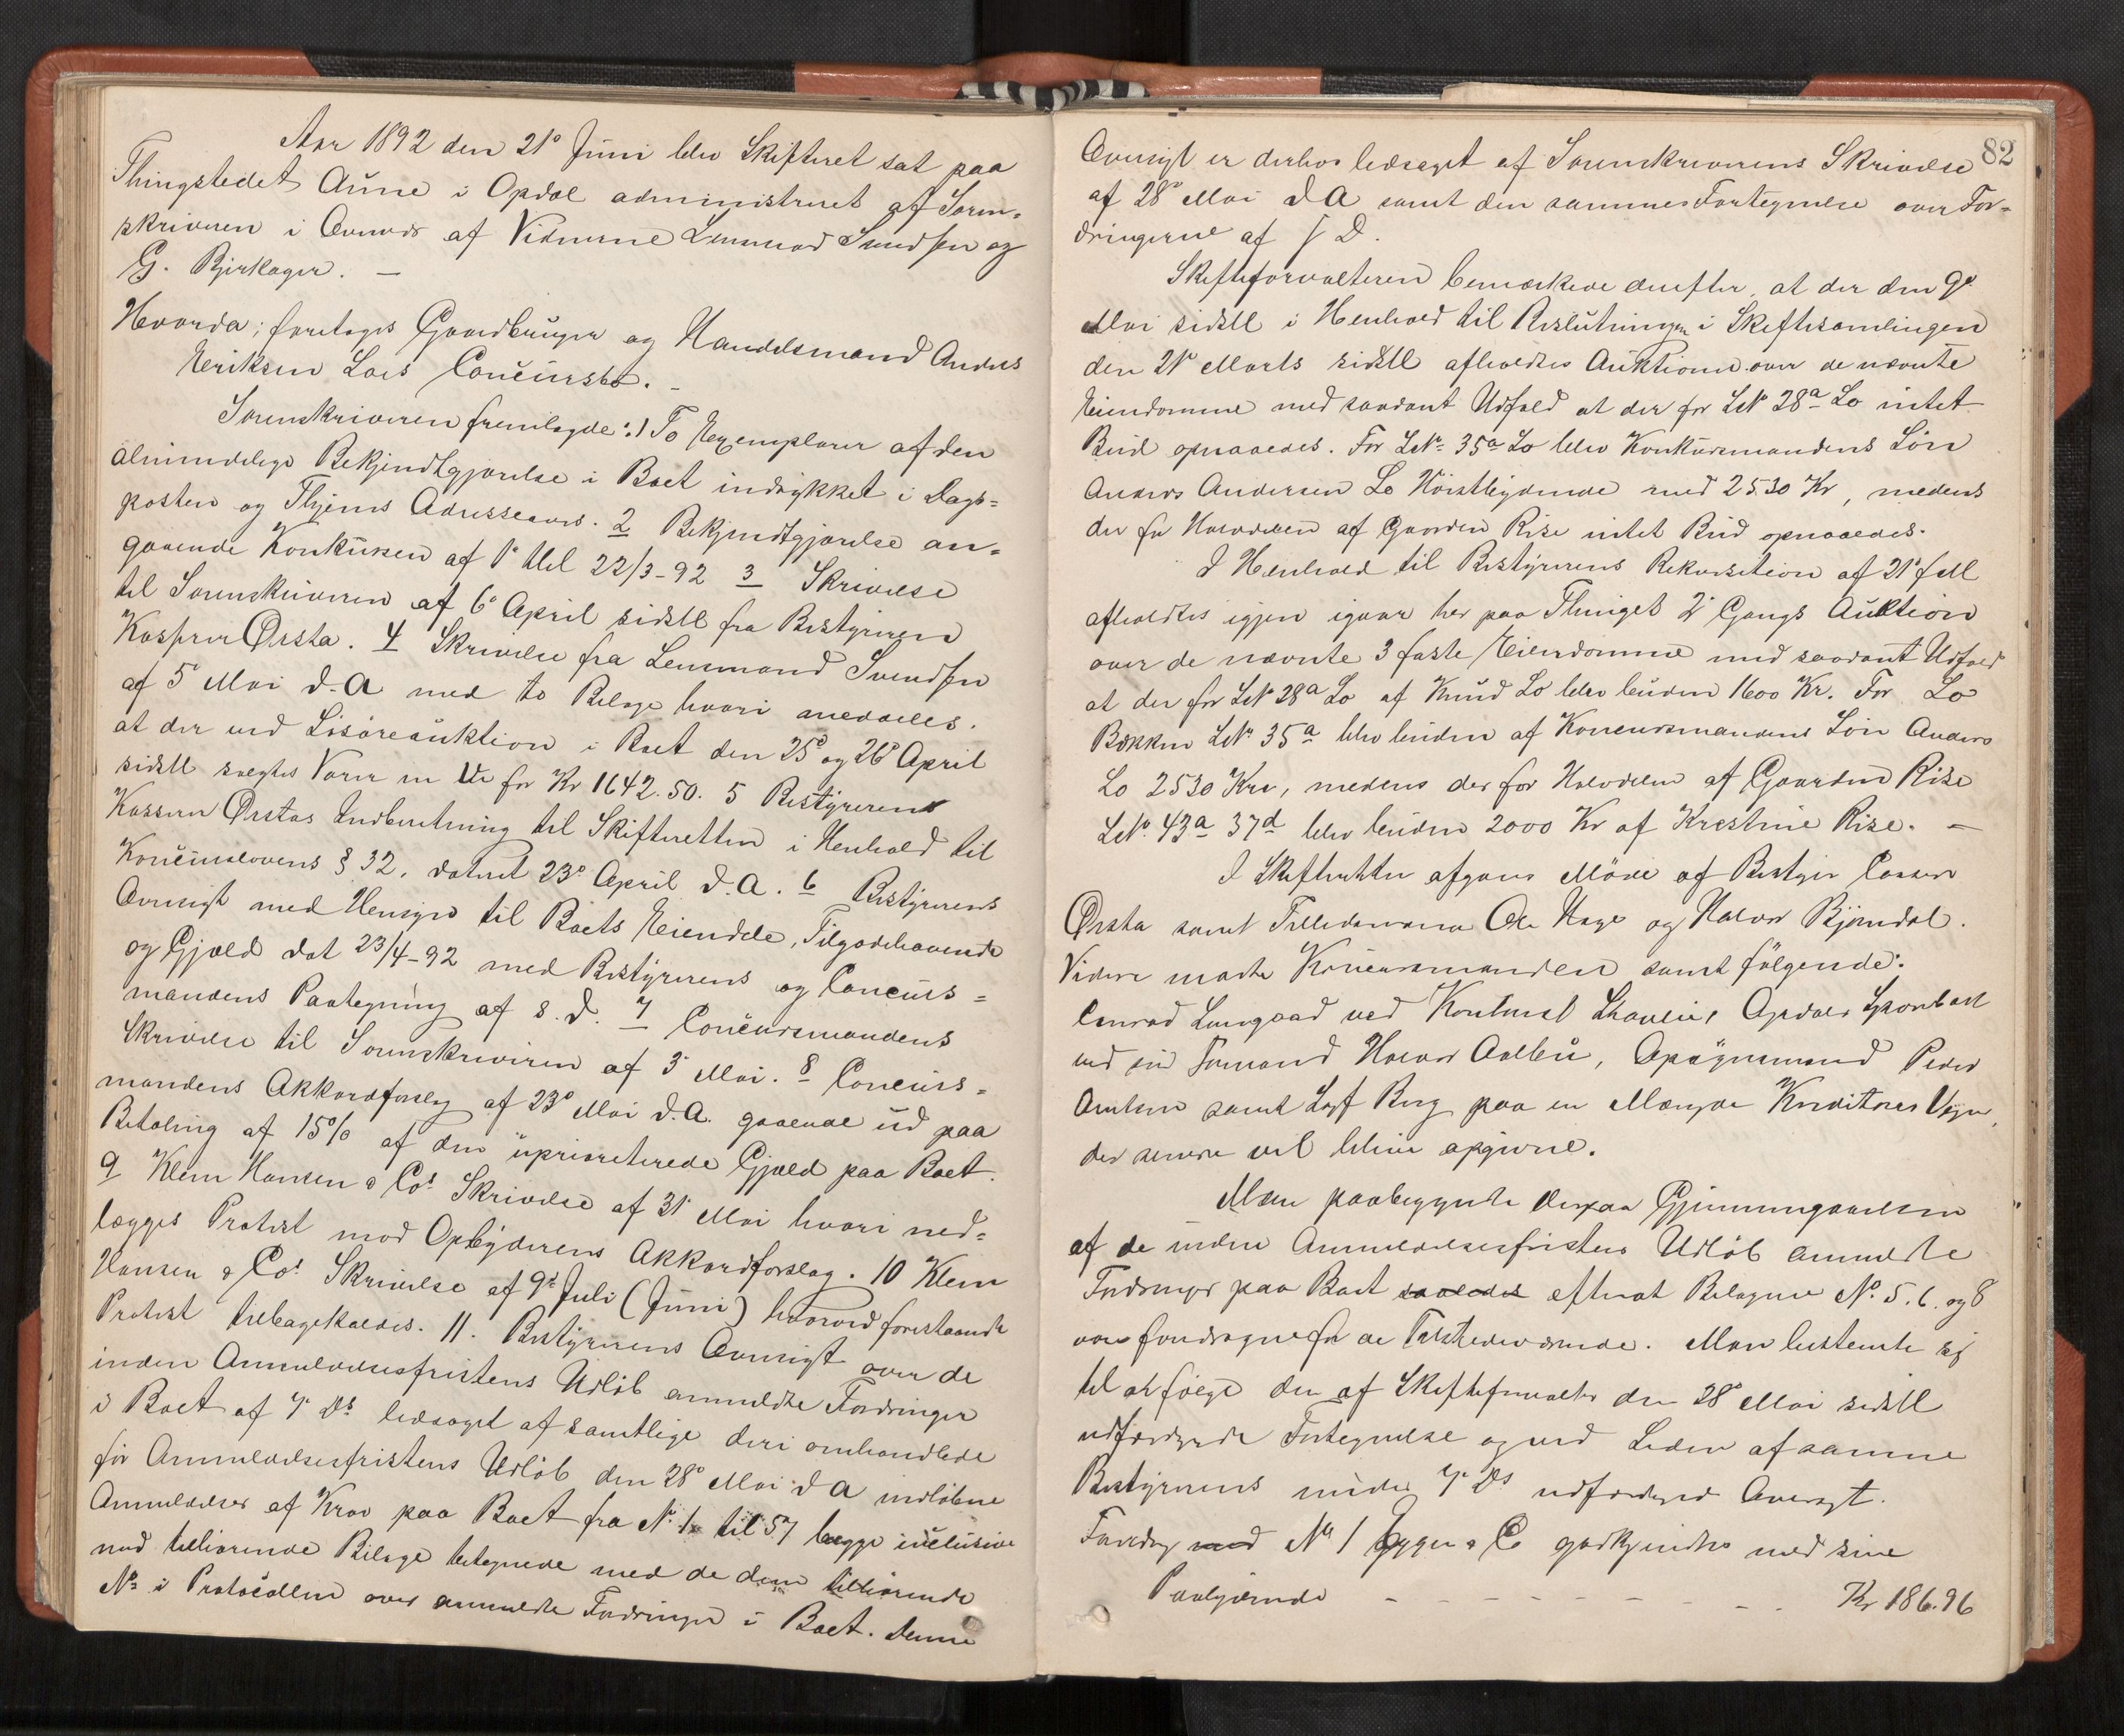 Aar 1892 den 21de Juni blev Skifteret sat paa
Thingstedet Aune i Opdal administreret af Soren-
skriveren i Overvær af Vidnerne Lensmand Svendsen og
G. Bjerkager. —
Hvorda: foretoges Gaardbruger og Handelsmand Anders
Eriksen Loes Concursbo. -
Sorenskriveren fremlagde: 1 To Exemplarer af den
almindelige Bekjendtgjørelse i Boet indrykket i Dags-
posten og Thjems Adresseavis. 2 Bekjendtgjørelse an-
gaaende Konkursen af 22/3-92 3 Skrivelse
til Sorenskriveren af 6te April sidstl fra Bestyreren
Kasserer Ørsta. 4 Skrivelse fra Lensmand Svendsen
af 5te Mai d.A med to Bilage hvori meddeles.
at der ved Løsøreauktion i Boet den 25de og 26de April
sidstl solgtes Varer m Vi for Kr 1642.50. 5 Bestyrerens
Kasserer Ørstas Indberetning til Skifteretten i Henhold til
Concurslovens § 32. dateret 23de April d.A. 6 Bestyrerens
Oversigt med Hensyn til Boets Eiendele, Tilgodehavende
og Gjæld dat 23/4-92 med Bestyrerens og Concurs-
mandens Paategning af s. D. 7 Concursmandens
Skrivelse til Sorenskriveren af 3 Mai. 8 Concurs-
mandens Akkordforslag af 23de Mai d.A. gaaende ud paa
Betaling af 15% af den uprioriterede Gjæld paa Boet.
9 Klem Hansen & Cos Skrivelse af 31 Mai hvori ned-
lægges Protest mod Opbyderens Akkordforslag. 10 Klem
Hansen & Cos Skrivelse af 9de Juli (Juni) hvorved forestaaende
Protest tilbagekaldes. 11. Bestyrerens Oversigt over de
inden Anmeldelsesfristens Udløb anmeldte Fordringer
i Boet af 7de Ds ledsaget af samtlige deri omhandlede
før Anmeldelsesfristens Udløb den 28de Mai d A indløbne
Anmeldelser af Krav paa Boet fra No 1 til 57 begge inclusive
med tilhørende Bilage betegnede med de dem tilhørende
No i Protocollen over anmeldte Fordringer i Boet. Denne
82
Oversigt er derhos ledsaget af Sorenskriverens Skrivelse
af 28de Mai d A samt den sammes Fortegnelse over For-
dringerne af s D.
Skifteforvalteren bemærkede derefter, at der den 9de
Mai sidstl i Henhold til Beslutningen i Skiftesamlingen
den 21de Marts sidstl afholdtes Auktioner over de nævnte
Eiendomme med saadant Udfald at der for LNr 28a Lo intet
Bud opnaaedes. For LNr 35a Lo blev Konkursmandens Søn
Anders Andersen Lo Høistbydende med 2530 Kr, medens
der for Halvdelen af Gaarden Rise intet Bud opnaaedes.
I Henhold til Bestyrerens Rekvisition af 21de f M
afholdtes igjen igaar her paa Thinget 2' Gangs Auktion
over de nævnte 3 faste Eiendomme med saadant Udfald
at der for LNr 28a Lo af Knud Lo blev buden 1600 Kr. For Lo
Bækken LNr 35a blev buden af Koncursmandens Søn Anders
Lo 2530 Kr, medens der for Halvdelen af Gaarden Rise
LNo. 43a 37d blev buden 2000 Kr af Krestine Rise. —
I Skifteretten afgaves Møde af Bestyrer Casserer
Ørsta samt Tillidsmænd Ole Hage og Halvor Bjørndal.
Videre mødte Koncursmanden samt følgende:
Conrad Langaard ved Kontorist Opdals Sparebank
ved sin Formand Halvor Aalbu, Opsynsmand Peder
samt Berg paa en Mængde Kreditorers Vegne,
der senere vil blive opgivne.
Man paabegyndte derpaa Gjennemgaaelsen
af de inden Anmeldelsesfristens Udløb anmeldte
Fordringer paa Boet saaledes efterat Bilagene No. 5. 6. og 8
var foredragne for de Tilstedeværende. Man bestemte sig
til at følge den af Skifteforvalter den 28de Mai sidstl
udfærdigede Fortegnelse og ved Siden af samme
Bestyrerens under 7de Ds udfærdiged Oversigt.
Fordring med No 1 & Co godkjendtes med sine
Paalydende - - - - - - - - Kr 186.96